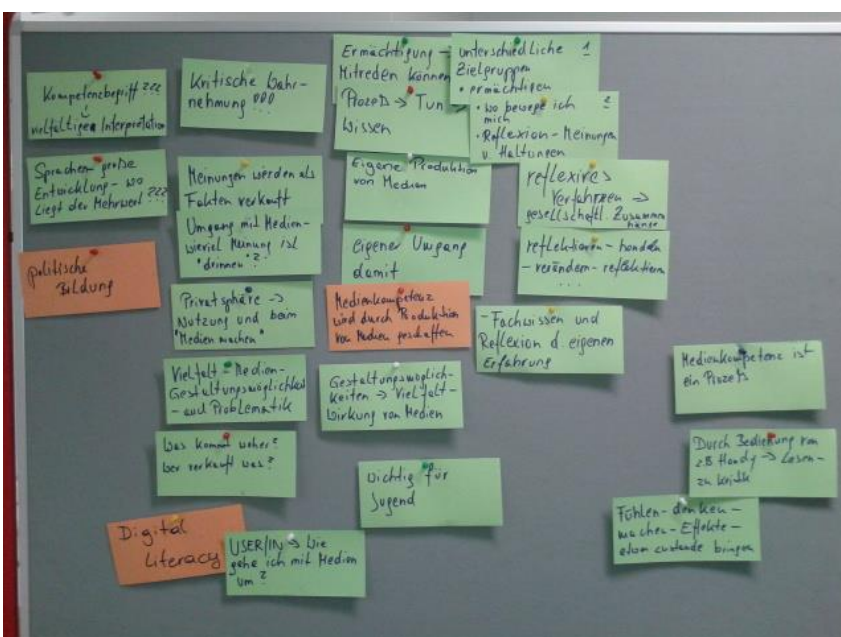 Kompetenzbegriff ???
vielfältigen Interpretation
Sprachen große
Entwicklung - wo
liegt der Mehrwert ???
politische
Bildung
Kritische Wahr-
nehmung !!!
Meinungen werden als
Fakten verkauft
Umgang mit Medien -
wieviel Meinung ist
"drinnen"?
Privatsphäre →
Nutzung und beim
"Medien machen"
Vielfalt - Medien-
Gestaltungsmöglichkeit
- und Problematik
Was kommt woher?
Wer verkauft was?
Digital
Literacy
USER/IN → Wie
gehe ich mit Medien
um?
Ermächtigung -
Mitreden können
Prozeß → Tun
Wissen
Eigene Produktion
von Medien
eigener Umgang
damit
Medienkompetenz
wird durch Produktion
von Medien geschaffen
Gestaltungsmöglich-
keiten → Vielfalt -
Wirkung von Medien
wichtig für
Jugend
unterschiedliche 1
Zielgruppen
• ermächtigen
• wo bewege ich 2
mich
• Reflexion - Meinungen
u. Haltungen
reflexives
Verfahren →
gesellschaftl. Zusammen
hänge
reflektieren - handeln
- verändern - reflektieren
...
- Fachwissen und
Reflexion d. eigenen
Erfahrung
Medienkompetenz ist
ein Prozeß
Durch Bedienung von
zB Handy → Lesen -
zu Kritik
Fühlen - denken -
machen - Effekte -
etwas zustande bringen